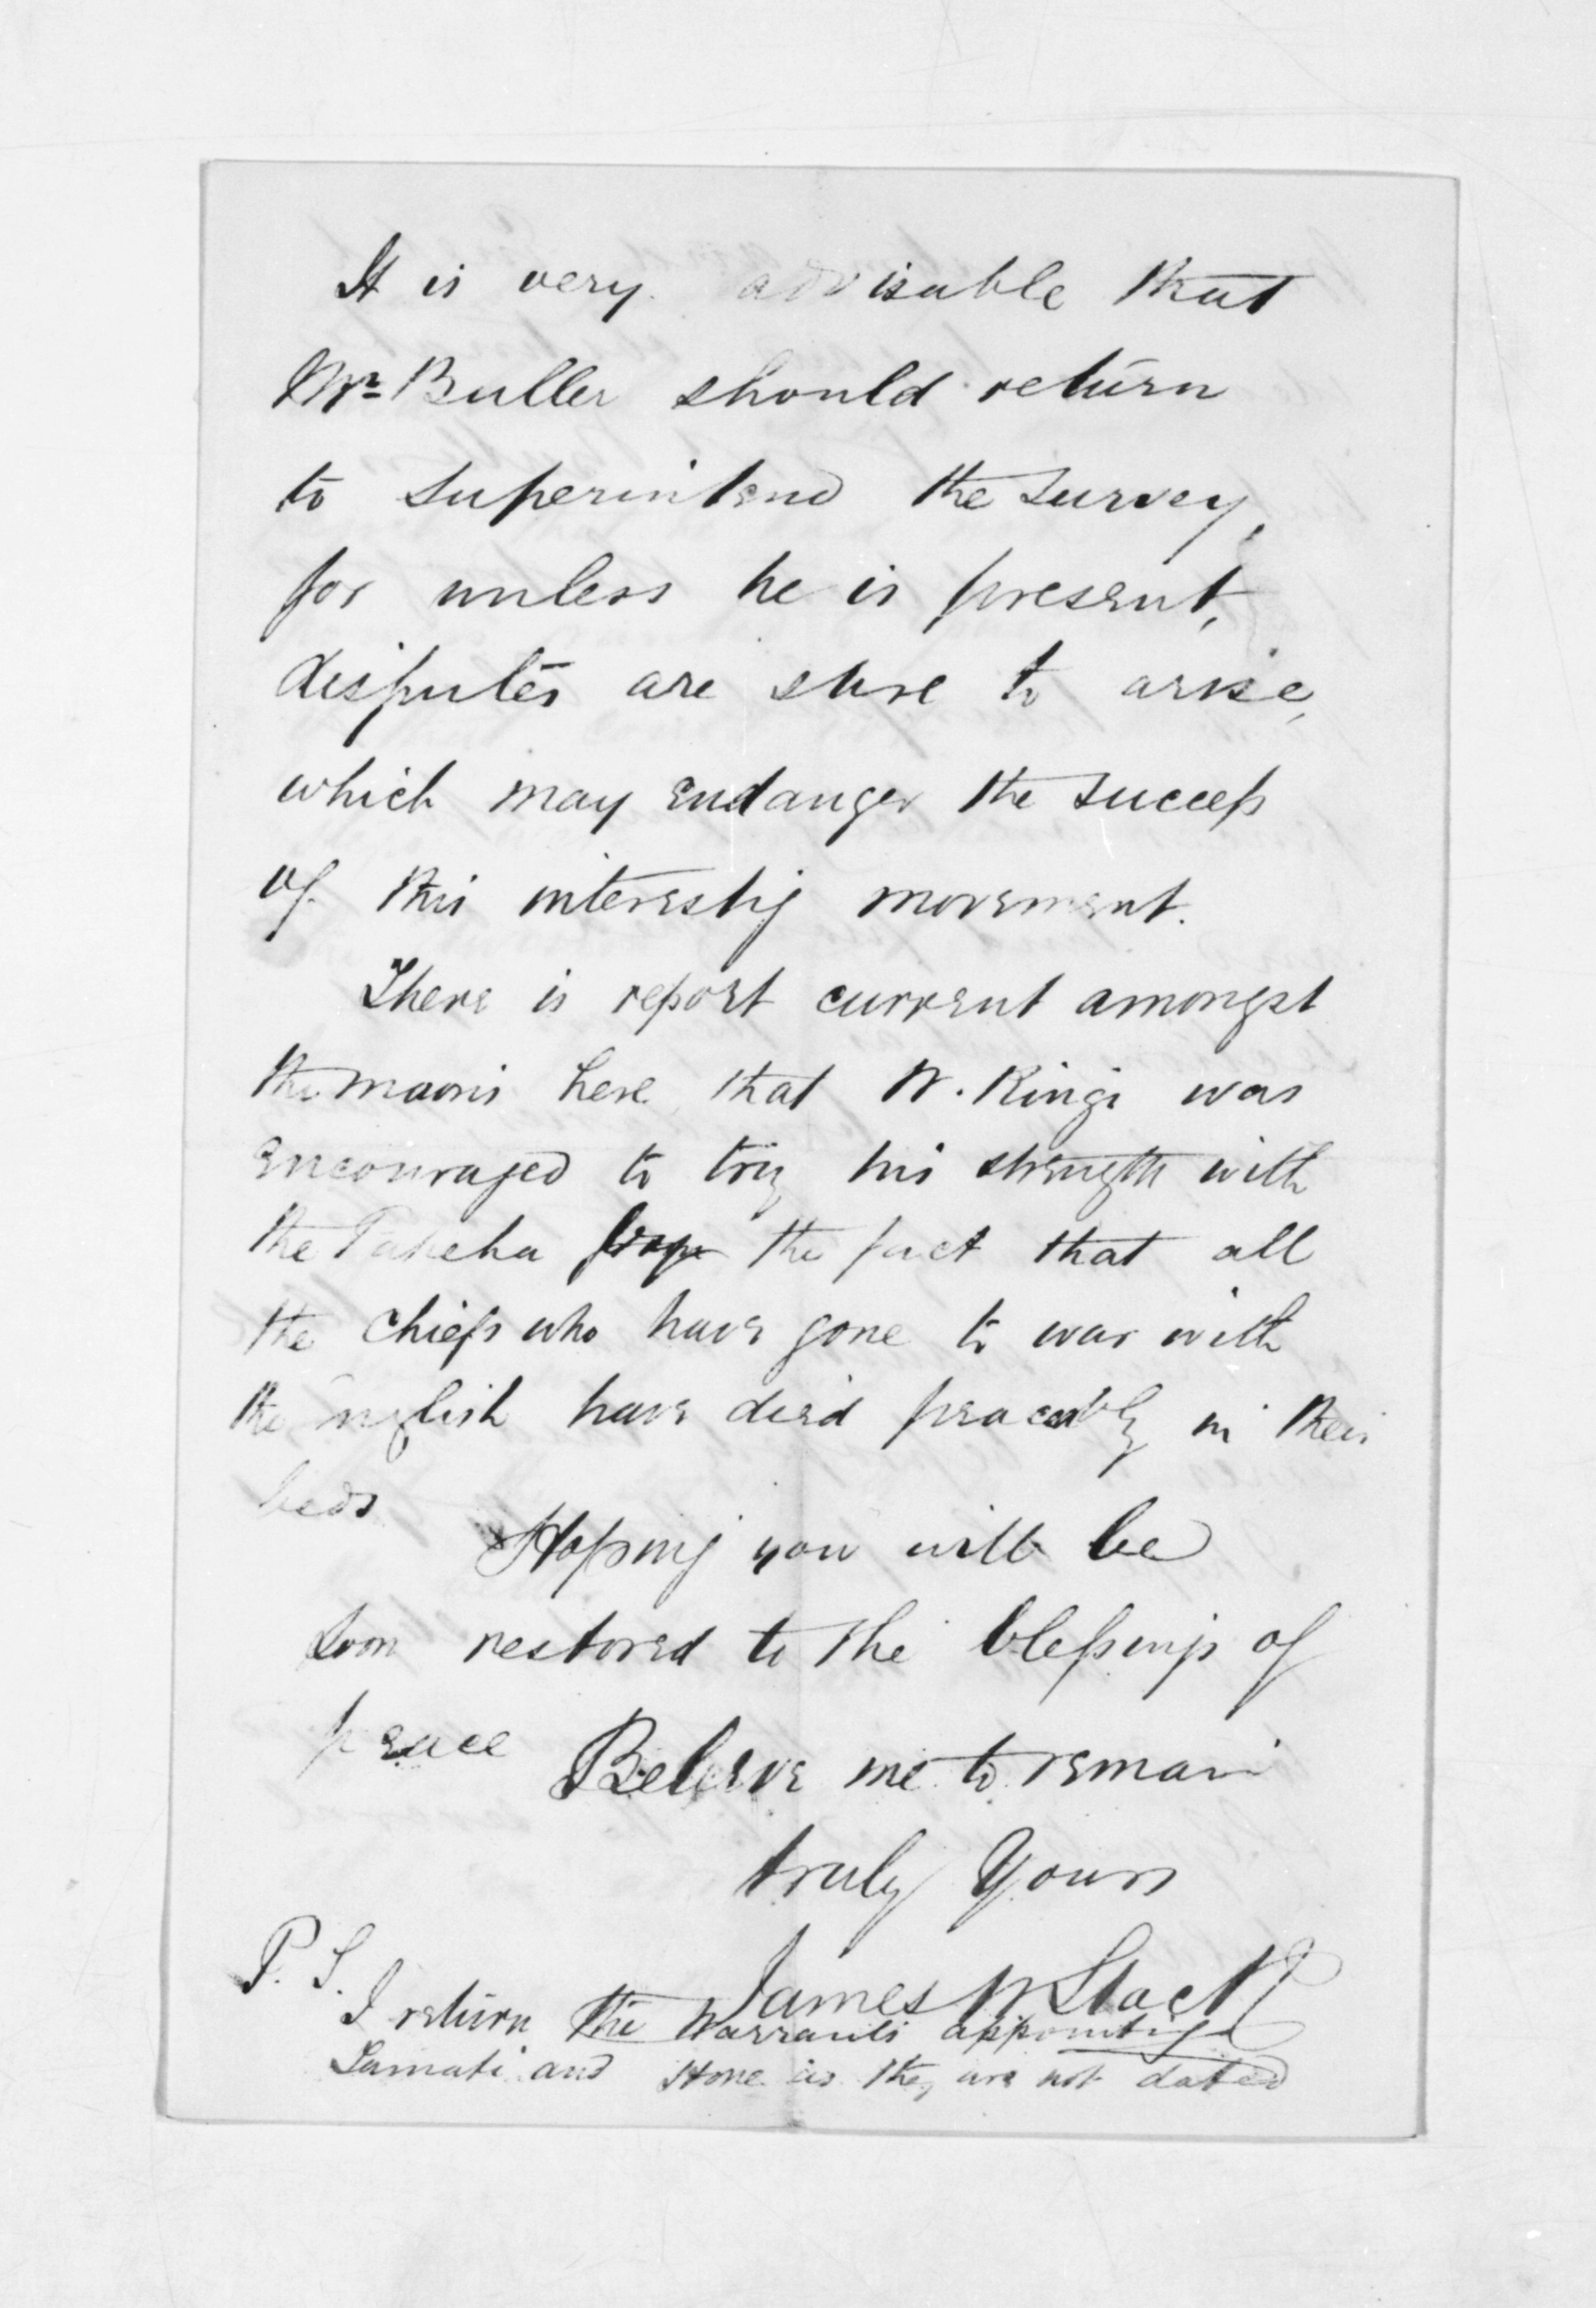 It is very advisable that
Mr Buller should return
to superintend the survey,
for unless he is present,
disputes are sure to arise,
which may endanger the success
of this interestig movement.
There is report current amongst
the maoris here that W. Kingi was
encouraged to try his strength with
the Pakeha from the fact that all
the chiefs who have gone to war with
the English have died peaceably in their
beds
Hoping you will be
soon restored to the blessings of
peace
Believe me to remain
truly Yours
James W Stack
P. S.
I return the Warrants appointing
Tamati and Hone as they are not dated